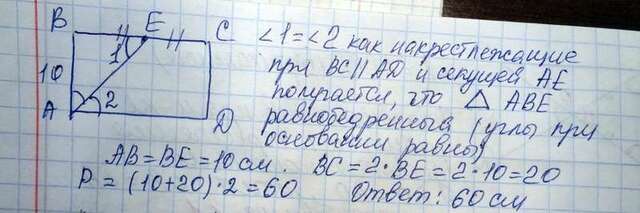 B E C
1
10
2
A D
∠1=∠2 как накрестлежащие
при BC||AD и секущей AE
получается, что △ ABE
равнобедренный (углы при
основании равны)
AB=BE=10 см. BC=2·BE=2·10=20
P=(10+20)·2=60 Ответ: 60 см